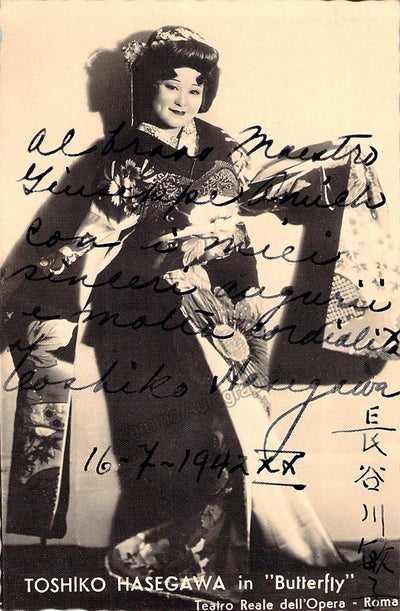 Al bravo Maestro
Giuseppe
con i miei
sinceri auguri
e molta cordialità
Toshiko Hasegawa
16-7-1942 XX
長谷川敏子
TOSHIKO HASEGAWA in "Butterfly"
Teatro Reale dell'Opera - Roma